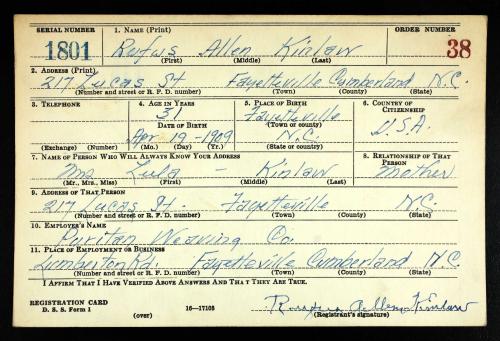 SERIAL NUMBER 1. NAME (Print) ORDER NUMBER
1801 Rufus Allen Kinlaw 38
(First) (Middle) (Last)
2. ADDRESS (Print)
217 Lucas St Fayetteville Cumberland N.C.
(Number and street or R. F. D. number) (Town) (County) (State)
3. TELEPHONE 4. AGE IN YEARS 5. PLACE OF BIRTH 6. COUNTRY OF CITIZENSHIP
31 Fayetteville
DATE OF BIRTH (Town or county) U.S.A.
Apr. 19 - 1909 N.C.
(Exchange) (Number) (Mo.) (Day) (Yr.) (State or country)
7. NAME OF PERSON WHO WILL ALWAYS KNOW YOUR ADDRESS 8. RELATIONSHIP OF THAT PERSON
Mrs Lula - Kinlaw Mother
(Mr., Mrs., Miss) (First) (Middle) (Last)
9. ADDRESS OF THAT PERSON
217 Lucas St. Fayetteville N.C.
(Number and street or R. F. D. number) (Town) (County) (State)
10. EMPLOYER'S NAME
Puritan Weaving Co.
11. PLACE OF EMPLOYMENT OR BUSINESS
Lumberton Rd. Fayetteville Cumberland N.C.
(Number and street or R. F. D. number) (Town) (County) (State)
I AFFIRM THAT I HAVE VERIFIED ABOVE ANSWERS AND THAT THEY ARE TRUE.
REGISTRATION CARD Allen Kinlaw
D. S. S. Form 1 (over) 16—17105 (Registrant's signature)